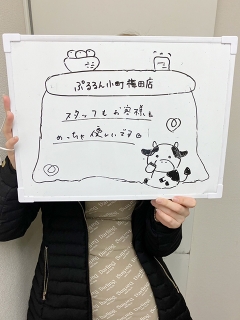 ぷるるん小町梅田店
スタッフもお客様も
めっちゃ優しいです